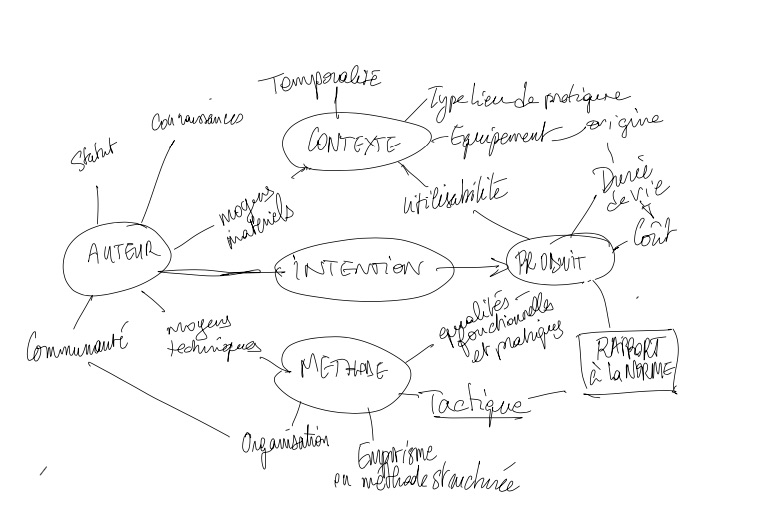 Temporalité
Type lieu de pratique
Connaissances
Equipement
origine
CONTEXTE
Statut
Durée
de vie
moyens
matériels
utilisabilité
AUTEUR
Coût
INTENTION
PRODUIT
qualités
fonctionnelles
et pratiques
moyens
techniques
Communauté
METHODE
RAPPORT
à la NORME
Tactique
Organisation
Empirisme
ou méthode structurée